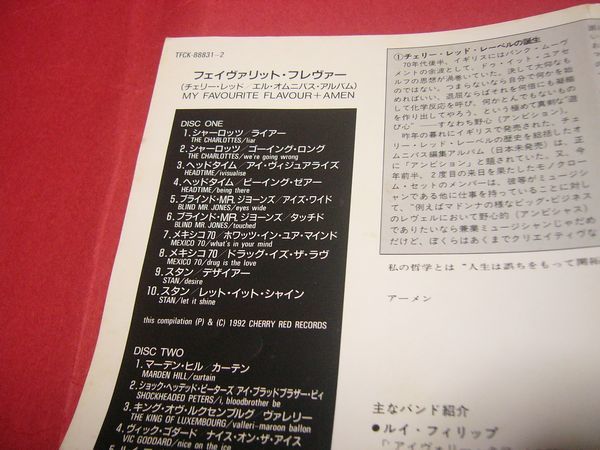 TFCK-88831-2
フェイヴァリット・フレヴァー
(チェリー・レッド/エル・オムニバス・アルバム)
MY FAVOURITE FLAVOUR+AMEN
DISC ONE
1. シャーロッツ/ライアー
THE CHARLOTTES/liar
2. シャーロッツ/ゴーイング・ロング
THE CHARLOTTES/we're going wrong
3. ヘッドタイム/アイ・ヴィジュアライズ
HEADTIME/ivisualise
4. ヘッドタイム/ビーイング・ゼアー
HEADTIME/being there
5. ブラインド・MR. ジョーンズ/アイズ・ワイド
BLIND MR. JONES/eyes wide
6. ブラインド・MR. ジョーンズ/タッチド
BLIND MR. JONES/touched
7. メキシコ70/ホワッツ・イン・ユア・マインド
MEXICO 70/what's in your mind
8. メキシコ70/ドラッグ・イズ・ザ・ラヴ
MEXICO 70/drug is the love
9. スタン/デザイアー
STAN/desire
10. スタン/レット・イット・シャイン
STAN/let it shine
this compilation (P) & (C) 1992 CHERRY RED RECORDS
DISC TWO
1. マーデン・ヒル/カーテン
MARDEN HILL/curtain
2. ショック・ヘッデッド・ピーターズ アイ・ブラッドブラザー・ビィ
SHOCKHEADED PETERS/i, bloodbrother be
3. キング・オヴ・ルクセンブルグ ヴァレリー
THE KING OF LUXEMBOURG/valleri-maroon ballon
4. ヴィック・ゴダード ナイス・オン・ザ・アイス
VIC GODDARD/nice on the ice
①チェリー・レッド・レーベルの誕生
70年代後半、イギリスにはパンク・ムーヴ
メントの余波として、ドゥ・イット・ユアセ
ルフの思想が渦巻いていた。決して大袈裟なも
のではない。つまらないなら自分で何かを始
めればいい、退屈ならばそれを何倍にも凝縮
して化学反応を呼び、何かとんでもないもの
を作り出してやろう、という極めて真剣な“遊
び心”――すなわち野心(アンビション)。
昨年の暮れにイギリスで発売された、チェ
リー・レッド・レーベルの歴史を総括したオ
ムニバス編集アルバム(日本未発売)は、正
に「アンビション」と題されていた。又、
年前半、2度目の来日を果たしたモノクロー
ム・セットのメンバーは、彼等がミュージシ
ャンである他に仕事を持っていることに対し
て、“例えばマドンナの様なビッグ・ビジネス
のレヴェルにおいて野心的(アンビシャス
でありたいなら兼業ミュージシャンじゃだめ
だけど、ぼくらはあくまでクリエイティヴな
私の哲学とは“人生は誤ちをもって開
アーメン
主なバンド紹介
●ルイ・フィリップ